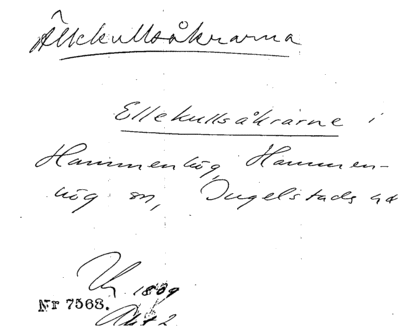 Älkkullsåkrarna
Ellekullsåkrarne i
Hammenhög, Hammen-
hög sn, Ingelstads hd
1809
Nr 7568.
Akt 2